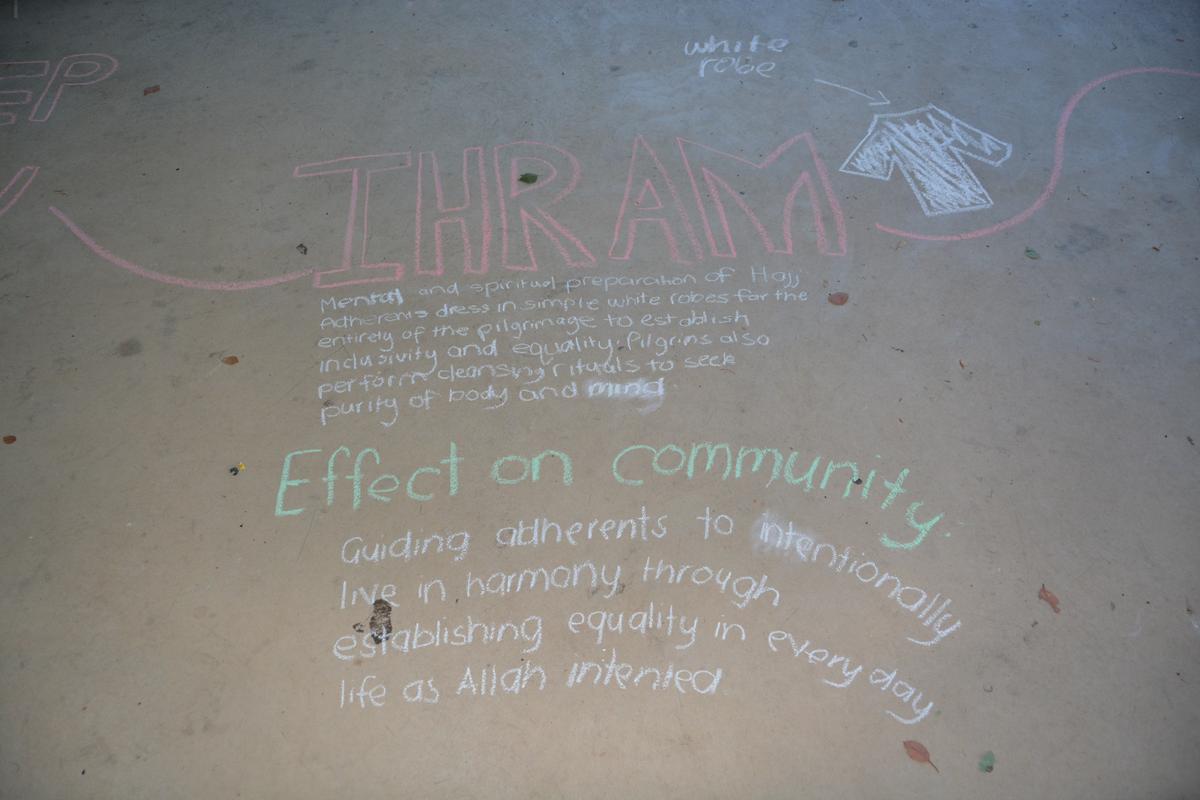 EP
white
robe
IHRAM
Mental and spiritual preparation of Hajj
Adherents dress in simple white robes for the
entirely of the pilgrimage to establish
inclusivity and equality. Pilgrims also
perform cleansing rituals to seek
purity of body and mind.
Effect on community.
Guiding adherents to intentionally
live in harmony through
establishing equality in every day
life as Allah intenled